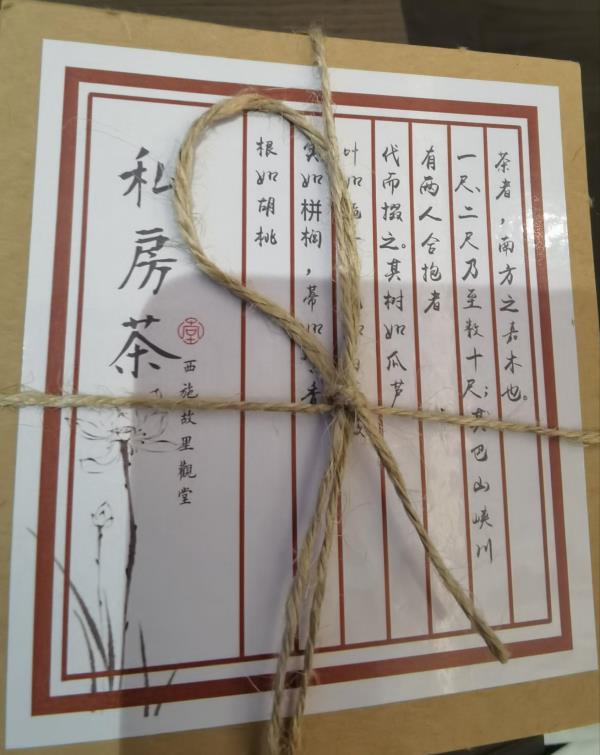 茶者，南方之嘉木也。
一尺、二尺乃至数十尺；其巴山峡川
有两人合抱者
代而掇之。其树如瓜芦
叶如
实如栟榈，蒂如香
根如胡桃
私房茶
西施故里觀堂